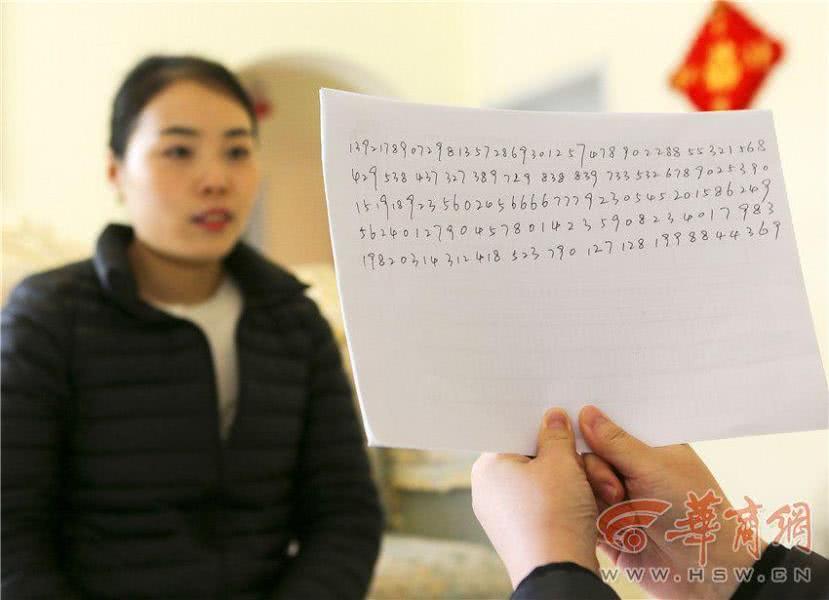 13921789072981357286930125747890228855321568
4295384373273897298388397335326789025390
15191892356024566667779230545201586249
56240127904578014235908234017983
198203143124185237901271281998844369
华商网
WWW.HSW.CN